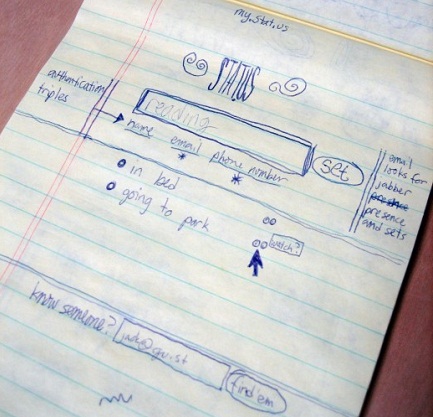 my.stat.us
STATUS
authentication
triples
reading
name email phone number
set
in bed
going to park
watch?
email
looks for
jabber
presence
and sets
know someone?
find 'em